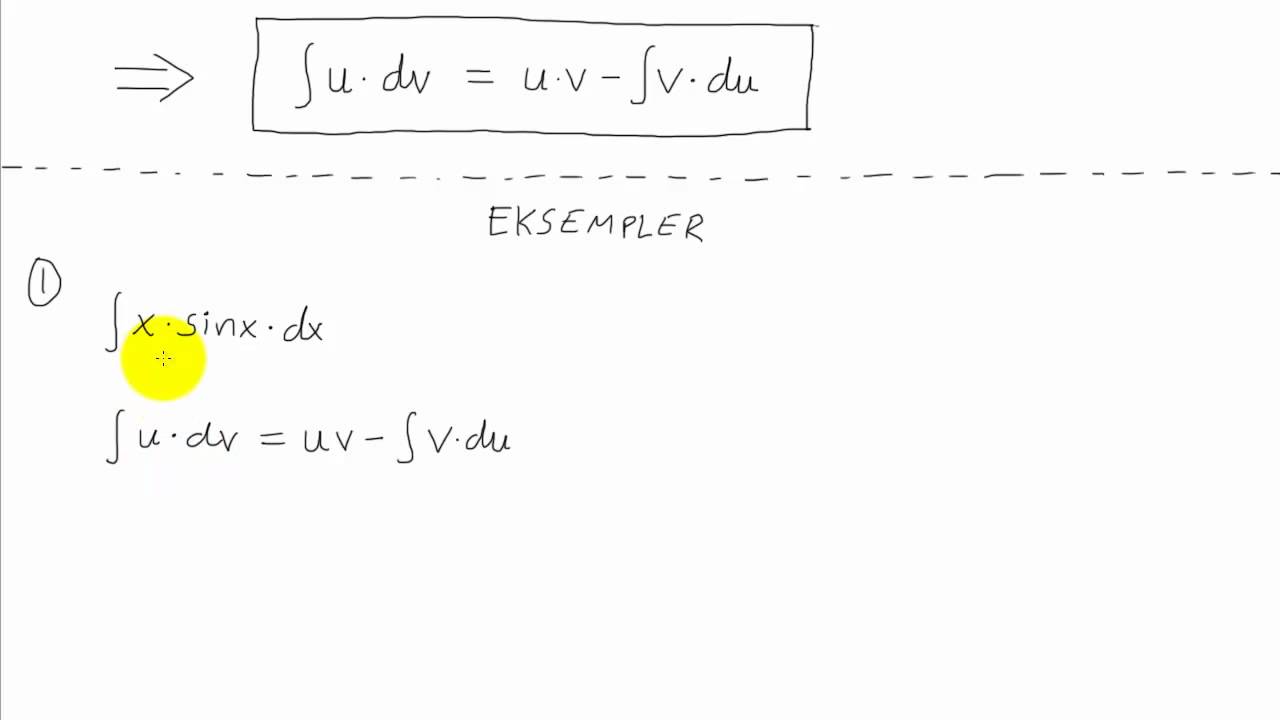 ⇒ ∫u·dv = u·v − ∫v·du
EKSEMPLER
①
∫x·sinx·dx
∫u·dv = uv − ∫v·du